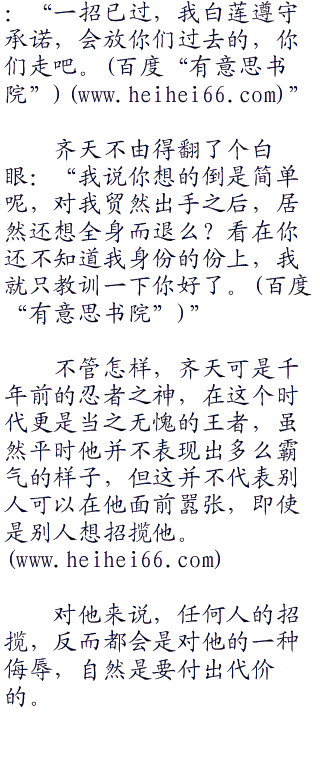 ：“一招已过，我白莲遵守
承诺，会放你们过去的，你
们走吧。(百度“有意思书
院”)(www.heihei66.com)”
齐天不由得翻了个白
眼：“我说你想的倒是简单
呢，对我贸然出手之后，居
然还想全身而退么？看在你
还不知道我身份的份上，我
就只教训一下你好了。(百度
“有意思书院”)”
不管怎样，齐天可是千
年前的忍者之神，在这个时
代更是当之无愧的王者，虽
然平时他并不表现出多么霸
气的样子，但这并不代表别
人可以在他面前嚣张，即使
是别人想招揽他。
(www.heihei66.com)
对他来说，任何人的招
揽，反而都会是对他的一种
侮辱，自然是要付出代价
的。